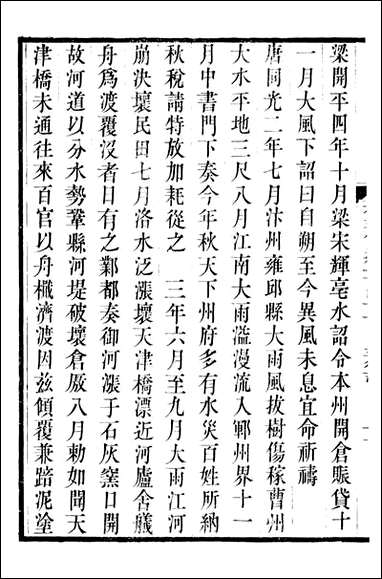 梁開平四年十月梁宋輝亳水詔令本州開倉賑貸十
一月大風下詔曰自朔至今異風未息宜命祈禱
唐同光二年七月汴州雍邱縣大雨風拔樹傷稼曹州
大水平地三尺八月江南大雨溢漫流入鄆州界十一
月中書門下奏今年秋天下州府多有水災百姓所納
秋稅請特放加耗從之　三年六月至九月大雨江河
崩決壞民田七月洛水泛漲壞天津橋漂近河廬舍艤
舟爲渡覆沒者日有之鄴都奏御河漲于石灰窰口開
故河道以分水勢鞏縣河堤破壞倉厫八月勅如聞天
津橋未通往來百官以舟檝濟渡因兹傾覆兼踣泥塗